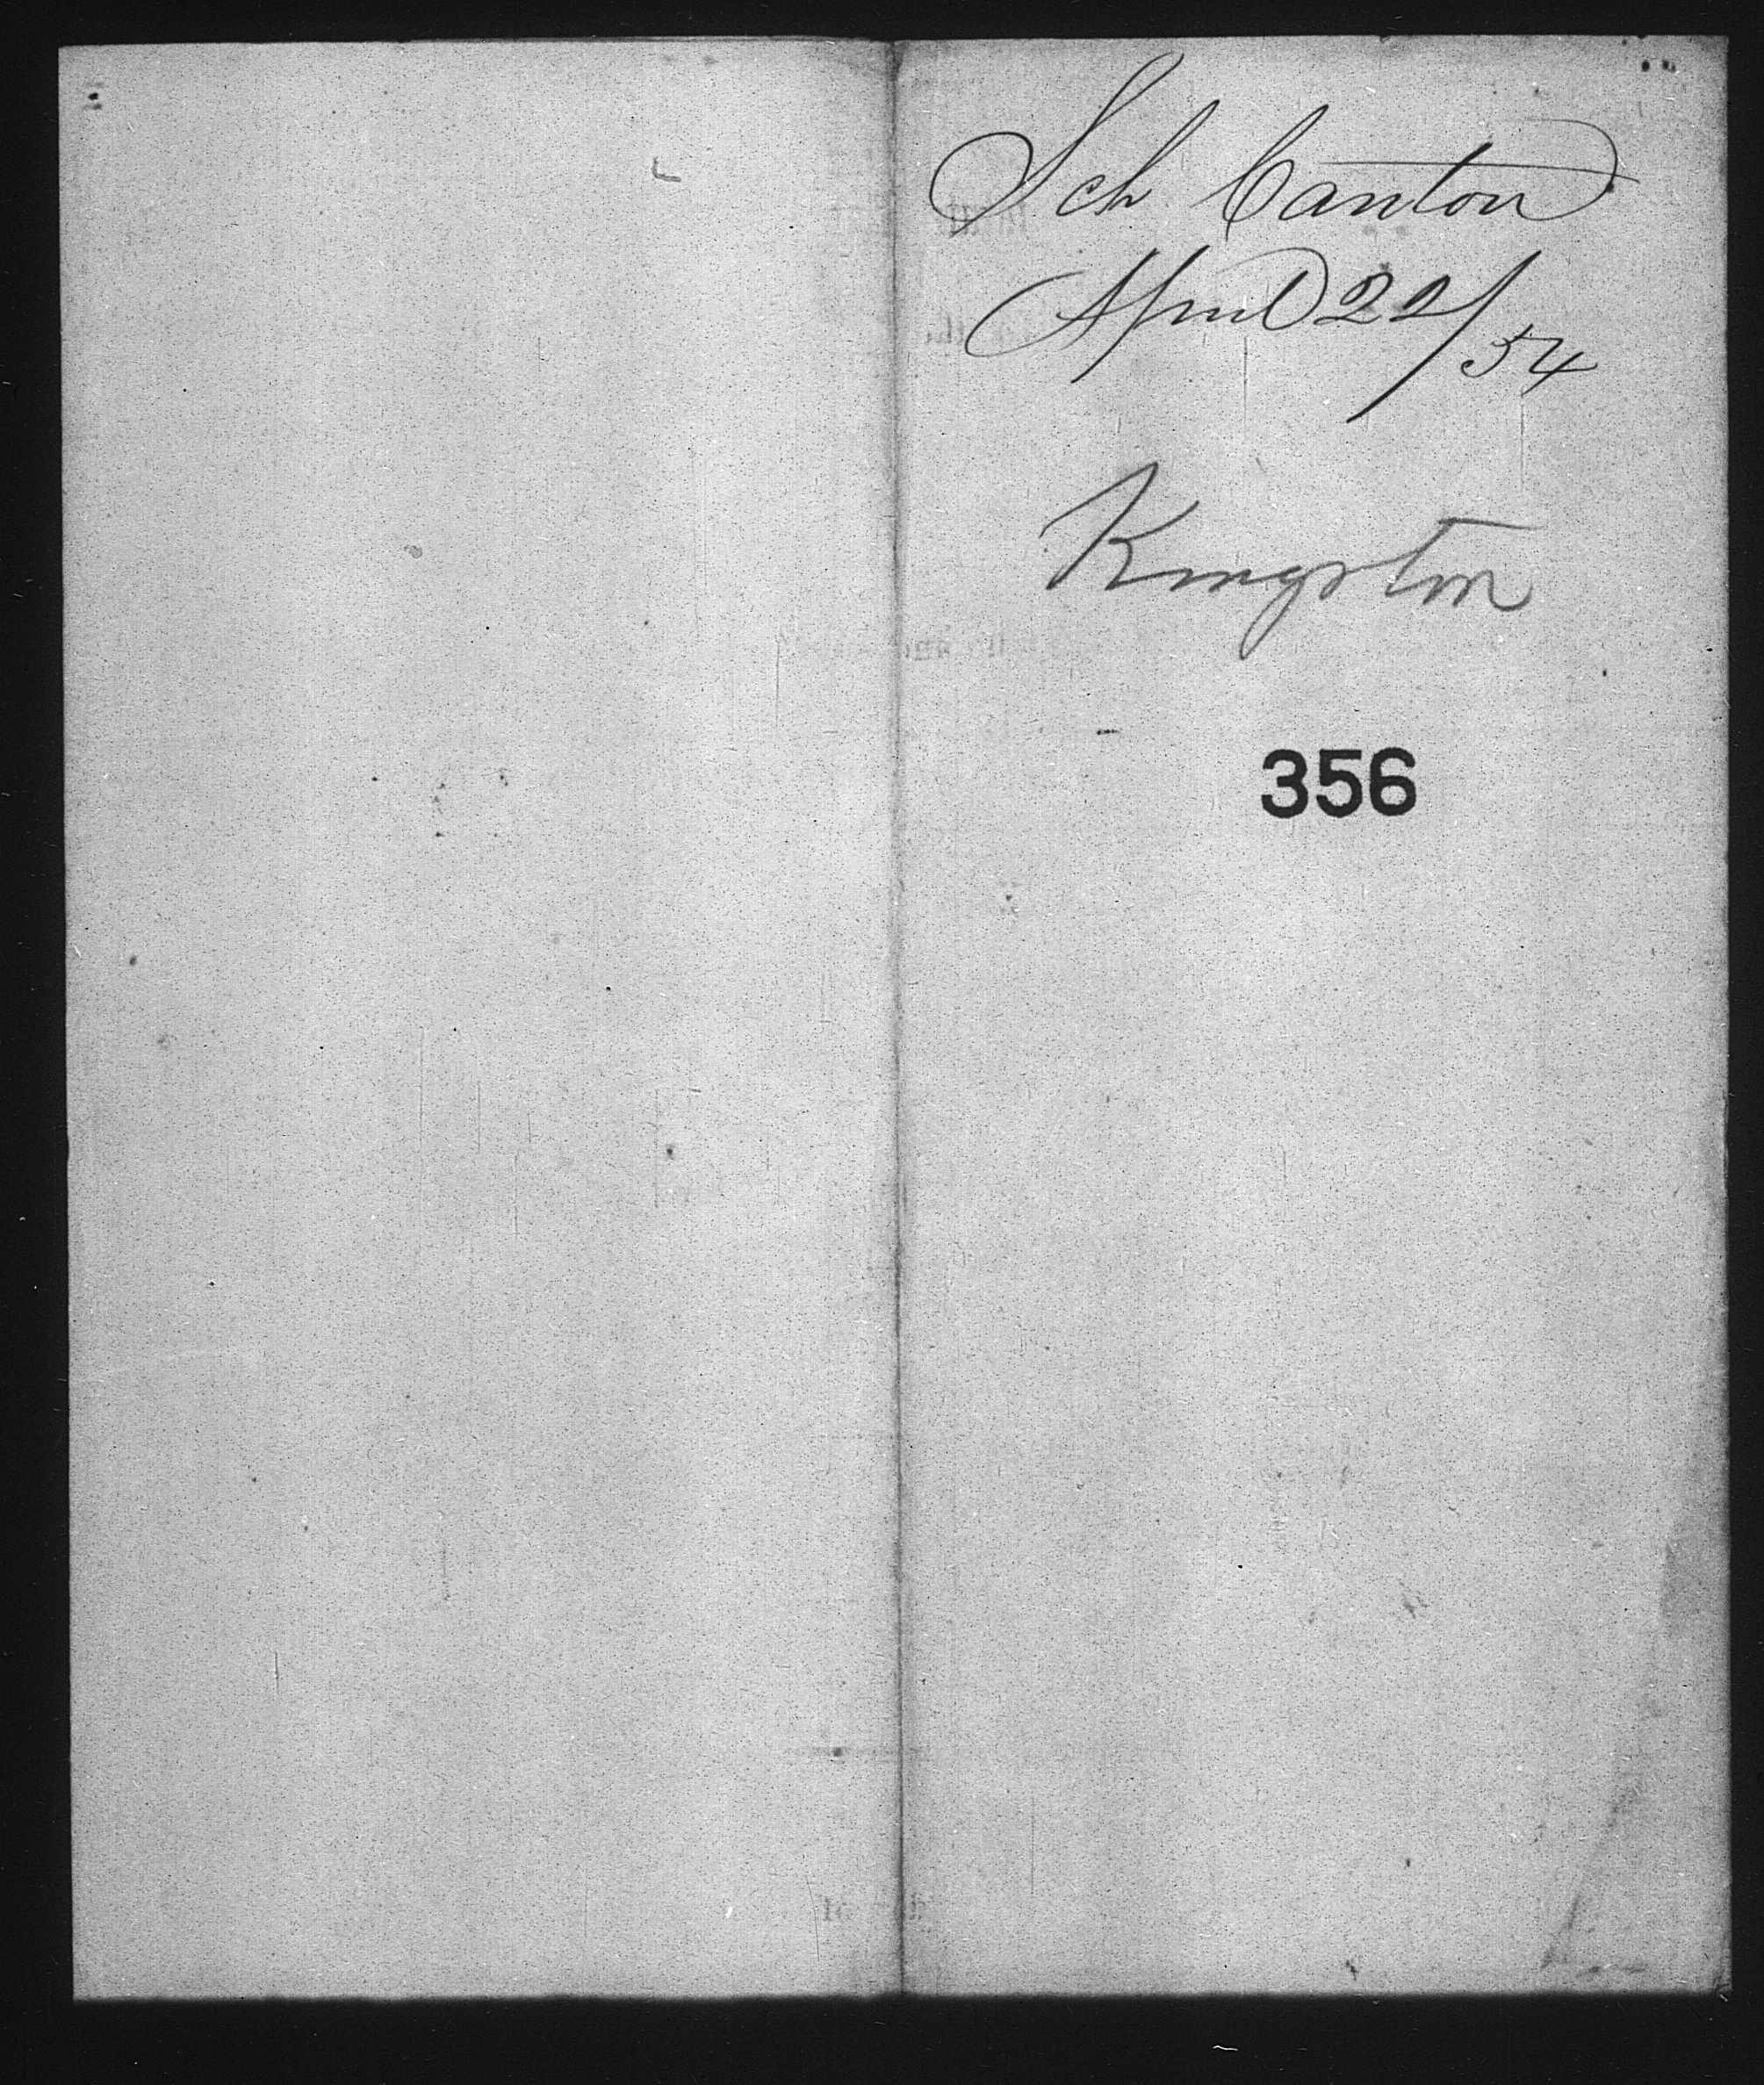 Sch Canton
April 22/54
Kingston
356